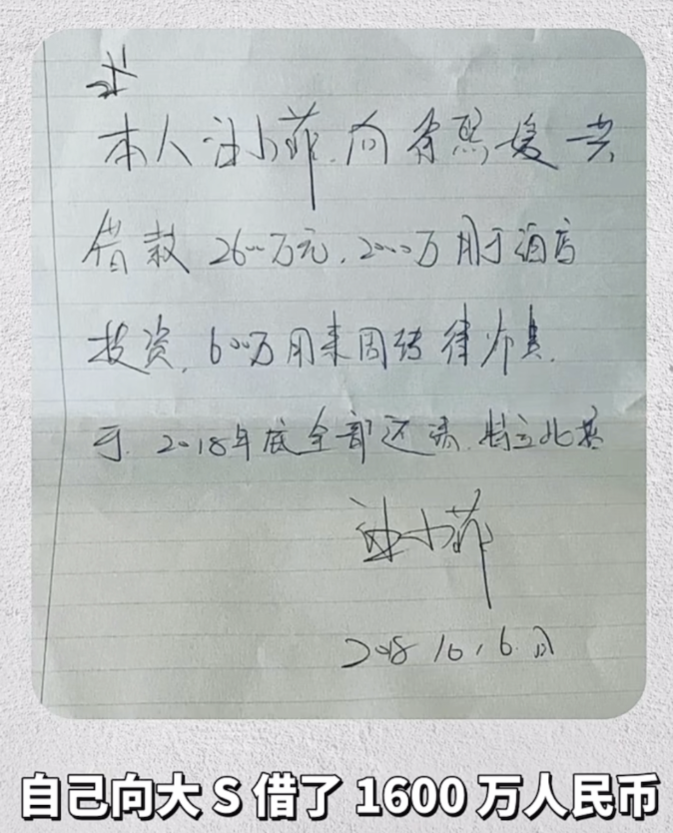 本人汪小菲.向徐熙媛共
借款2600万元.2000万用于酒店
投资.600万用来周转律师
于.2018年底全部还清.特立此
汪小菲
2018 10.6.日
自己向大 S 借了 1600 万人民币